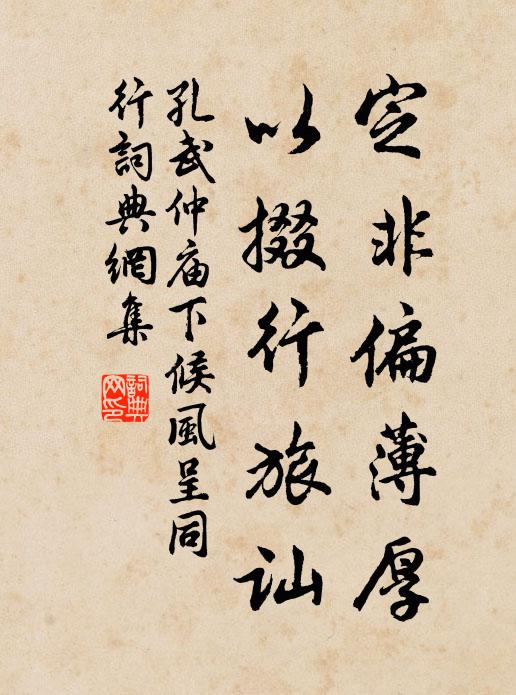 定非偏薄厚
以掇行旅讪
孔武仲庙下候風呈同
行詞典網集
詞典网印